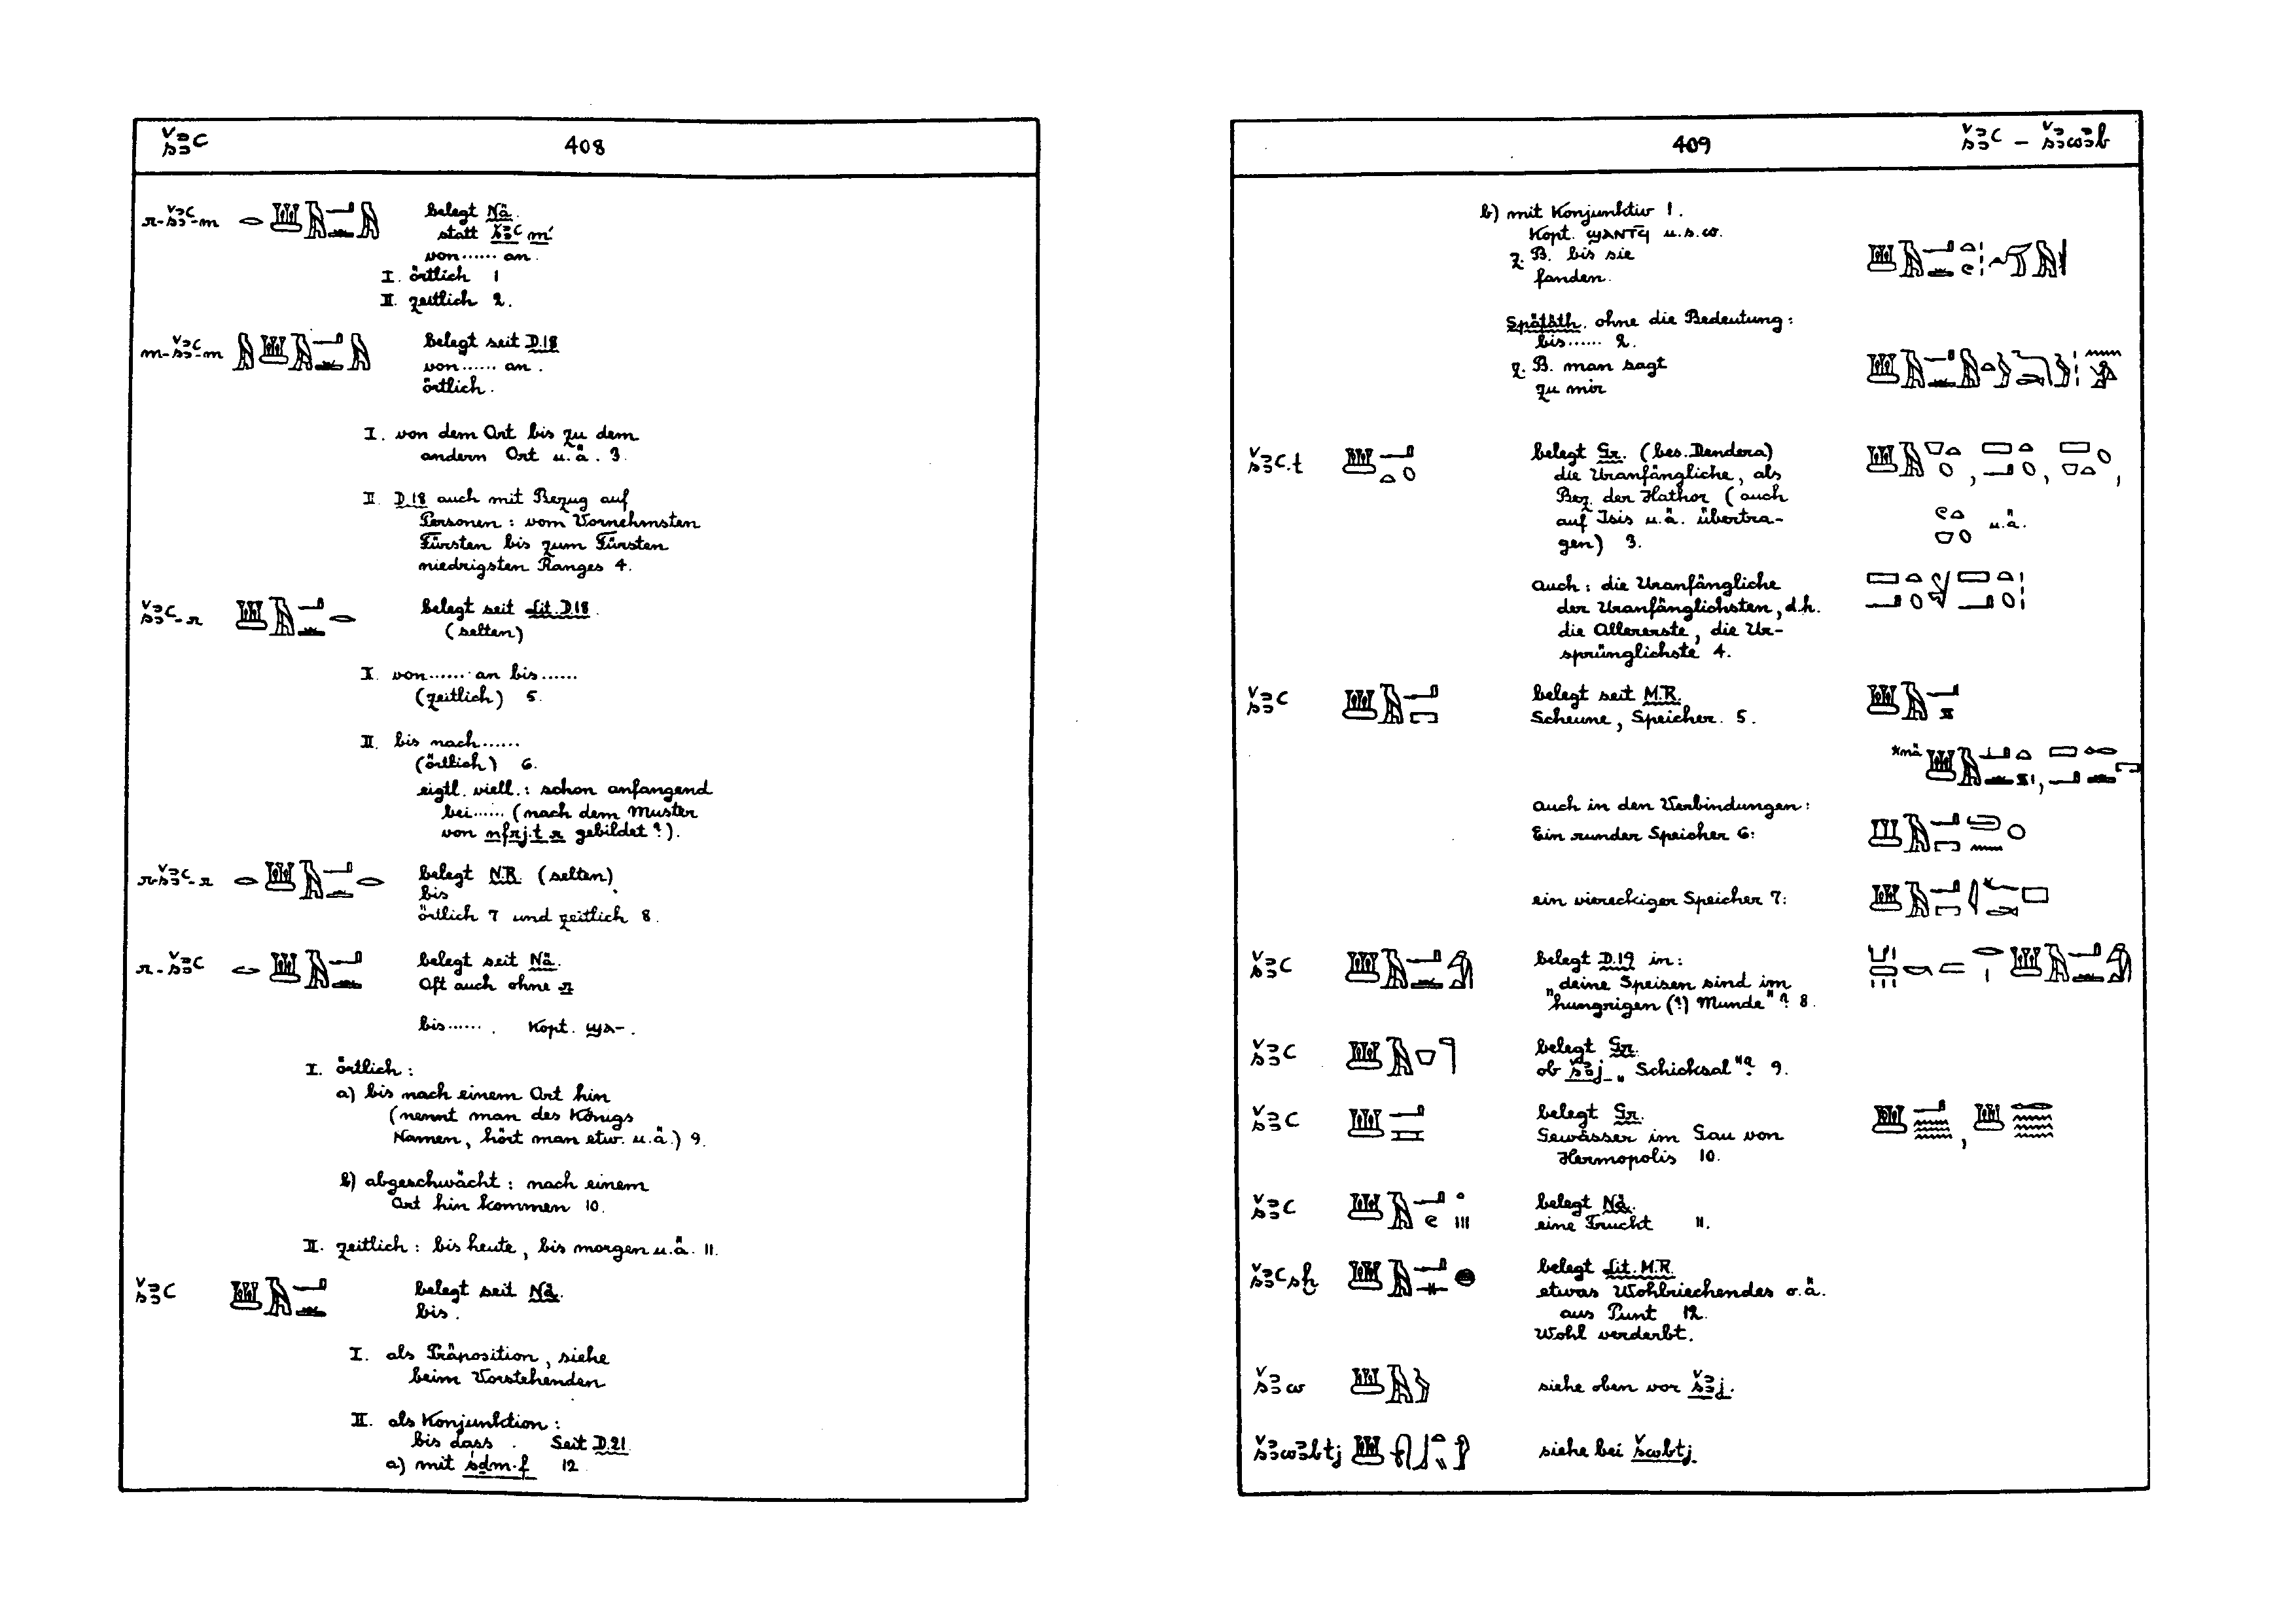 šꜣꜥ
408
r-šꜣꜥ-m belegt Nä.
statt šꜣꜥ m.
von...... an.
I. örtlich 1
II. zeitlich 2.
m-šꜣꜥ-m belegt seit D.18
von...... an.
örtlich.
I. von dem Ort bis zu dem
andern Ort u.ä. 3.
II. D.18 auch mit Bezug auf
Personen: vom Vornehmsten
Fürsten bis zum Fürsten
niedrigsten Ranges 4.
šꜣꜥ-r belegt seit Lit. D.18.
(selten)
I. von...... an bis......
(zeitlich) 5.
II. bis nach......
(örtlich) 6.
eigtl. viell.: schon anfangend
bei...... (nach dem Muster
von nfrj.t r gebildet?).
r-šꜣꜥ-r belegt N.R. (selten)
bis
örtlich 7 und zeitlich 8.
r-šꜣꜥ belegt seit Nä.
Oft auch ohne r
bis...... . Kopt. ϣⲁ-.
I. örtlich:
a) bis nach einem Ort hin
(nennt man des Königs
Namen, hört man etw. u.ä.) 9.
b) abgeschwächt: nach einem
Ort hin kommen 10.
II. zeitlich: bis heute, bis morgen u.ä. 11.
šꜣꜥ belegt seit Nä.
bis.
I. als Präposition, siehe
beim Vorstehenden
II. als Konjunktion:
bis dass. Seit D.21.
a) mit śdm.f 12
409
šꜣꜥ – šꜣwꜣb
b) mit Konjunktiv 1.
Kopt. ϣⲁⲛⲧϥ u.s.w.
z.B. bis sie
fanden.
Spätäth. ohne die Bedeutung:
bis...... 2.
z.B. man sagt
zu mir
šꜣꜥ.t belegt Gr. (bes. Dendera)
die Uranfängliche, als
Bez. der Hathor (auch
auf Isis u.ä. übertra-
gen) 3.
u.ä.
auch: die Uranfängliche
der Uranfänglichsten, d.h.
die Allererste, die Ur-
sprünglichste 4.
šꜣꜥ belegt seit M.R.
Scheune, Speicher. 5.
*nä
auch in den Verbindungen:
Ein runder Speicher 6:
ein viereckiger Speicher 7:
šꜣꜥ belegt D.19 in:
deine Speisen sind im
"hungrigen (?) Munde"? 8.
šꜣꜥ belegt Gr.
ob šꜣj „Schicksal"? 9.
šꜣꜥ belegt Gr.
Gewässer im Gau von
Hermopolis 10.
šꜣꜥ belegt Nä.
eine Frucht 11.
šꜣꜥsḫ belegt Lit. M.R.
etwas Wohlriechendes o.ä.
aus Punt 12.
Wohl verderbt.
šꜣw siehe oben vor šꜣj.
šꜣwꜣbtj siehe bei šwbtj.